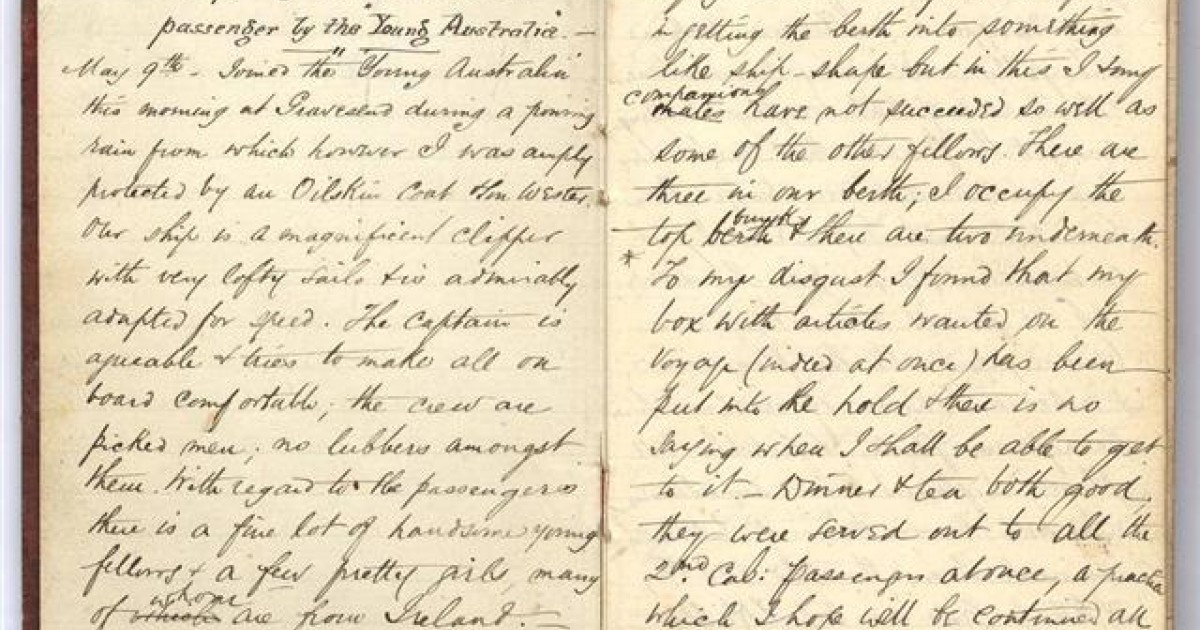 passenger by the "Young Australia". —
May 9th - Joined the "Young Australia"
this morning at Gravesend during a pouring
rain from which however I was amply
protected by an Oilskin Coat & Sou Wester.
Our ship is a magnificent clipper
with very lofty sails & is admirably
adapted for speed. The Captain is
agreeable & tries to make all on
board comfortable; the crew are
picked men; no lubbers amongst
them. With regard to the passengers
there is a fine lot of handsome young
fellows & a few pretty girls, many
of which whom are from Ireland. —
in getting the berth into something
like ship-shape but in this I & my
companions
mates have not succeeded so well as
some of the other fellows. There are
three in our berth; I occupy the
top berth bunk & there are two underneath.
* To my disgust I found that my
box with articles wanted on the
Voyage (indeed at once) has been
put into the hold & there is no
saying when I shall be able to get
to it. — Dinner & tea both good,
they were served out to all the
2nd Cab: passengers at once, a practice
which I hope will be continued all